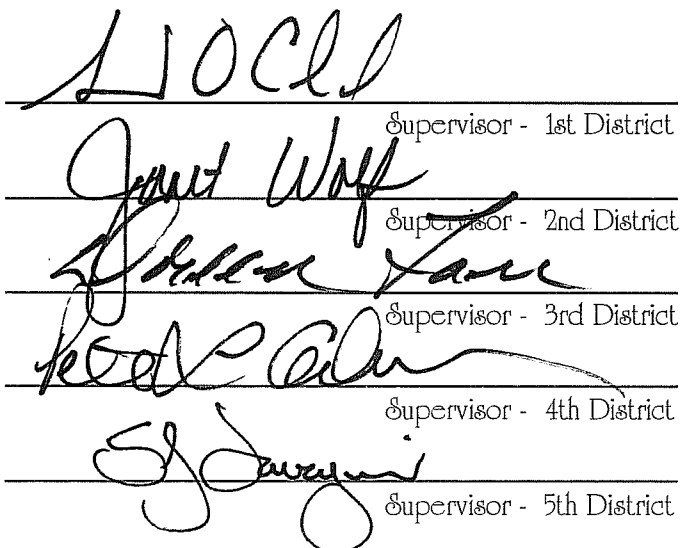 Supervisor - 1st District
Janet Wolf
Supervisor - 2nd District
Doreen Farr
Supervisor - 3rd District
Supervisor - 4th District
Supervisor - 5th District